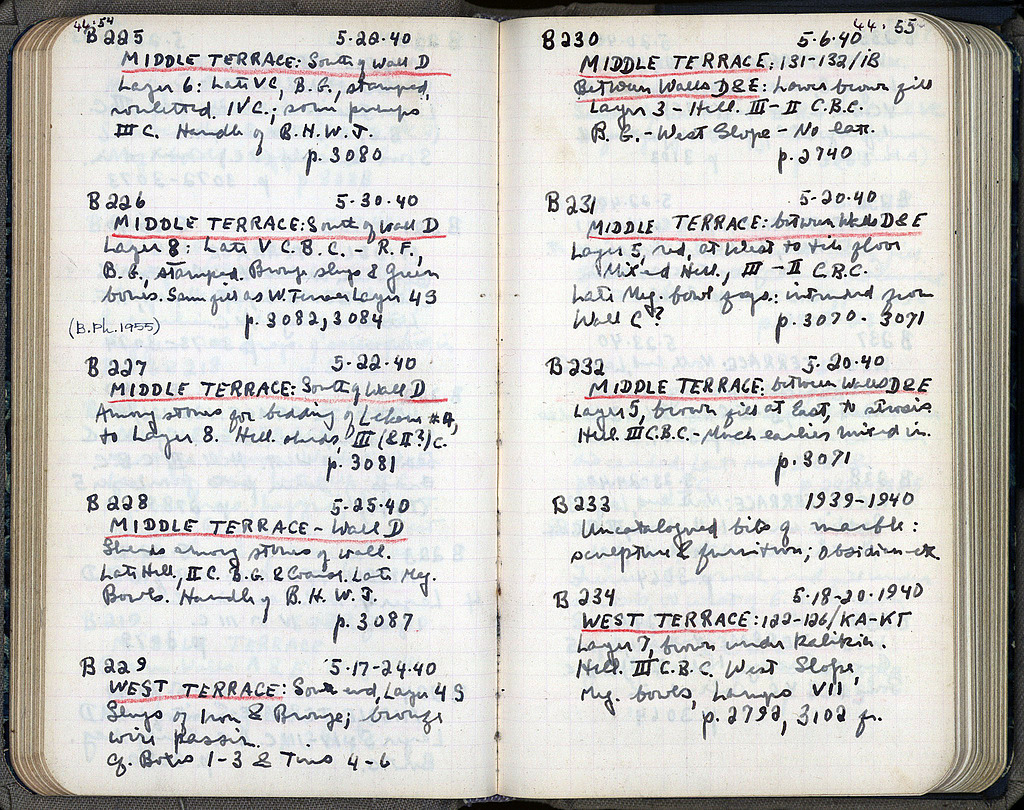 44:54
B 225 5-22-40
MIDDLE TERRACE: South of Wall D
Layer 6: Late V C, B.G., stamped,
rouletted IV C.; some perhaps
III C. Handle of B.H.W.J.
p. 3080
B 226 5-30-40
MIDDLE TERRACE: South of Wall D
Layer 8: Late V.C.B.C. - R.F.,
B.G., stamped. Bronze slugs & Green
bones. Same fill as W. Terrace Layer 4S
(B.Ph. 1955) p. 3082, 3084
B 227 5-22-40
MIDDLE TERRACE: South of Wall D
Among stones for bedding of #4,
to Layer 8. Hell. sherds, III (& II?) C.
p. 3081
B 228 5-25-40
MIDDLE TERRACE - Wall D
Sherds among stones of wall.
Late Hell., II C. B.G. & Coarse. Late Meg.
Bowls. Handle of B.H.W.J.
p. 3087
B 229 5-17-24-40
WEST TERRACE: South end, Layer 4S
Slugs of Iron & Bronze; bronze
wire passim.
cf. Boxes 1-3 & Tins 4-6
44:55
B 230 5-6-40
MIDDLE TERRACE: 131-132/IB
Between Walls D&E: Lower brown fill
Layer 3 - Hell. III-II C.B.C.
B.G. - West Slope - No late.
p. 2740
B 231 5-20-40
MIDDLE TERRACE: between Walls D&E
Layer 5, red, at West, to tile floor
Mixed Hell., III-II C.B.C.
Late Meg. bowl frgs.: intruded from
Wall C? p. 3070. 3071
B 232 5-20-40
MIDDLE TERRACE: between Walls D&E
Layer 5, brown fill at East, to
Hell. III C.B.C. - Much earlier mixed in.
p. 3071
B 233 1939-1940
Uncatalogued bits of marble:
sculpture & furniture; Obsidian etc
B 234 5-18-20-1940
WEST TERRACE: 122-126/KA-KT
Layer 7, brown under
Hell. III C.B.C. West Slope,
Meg. bowls, Lamps VII,
p. 2792, 3102 ff.